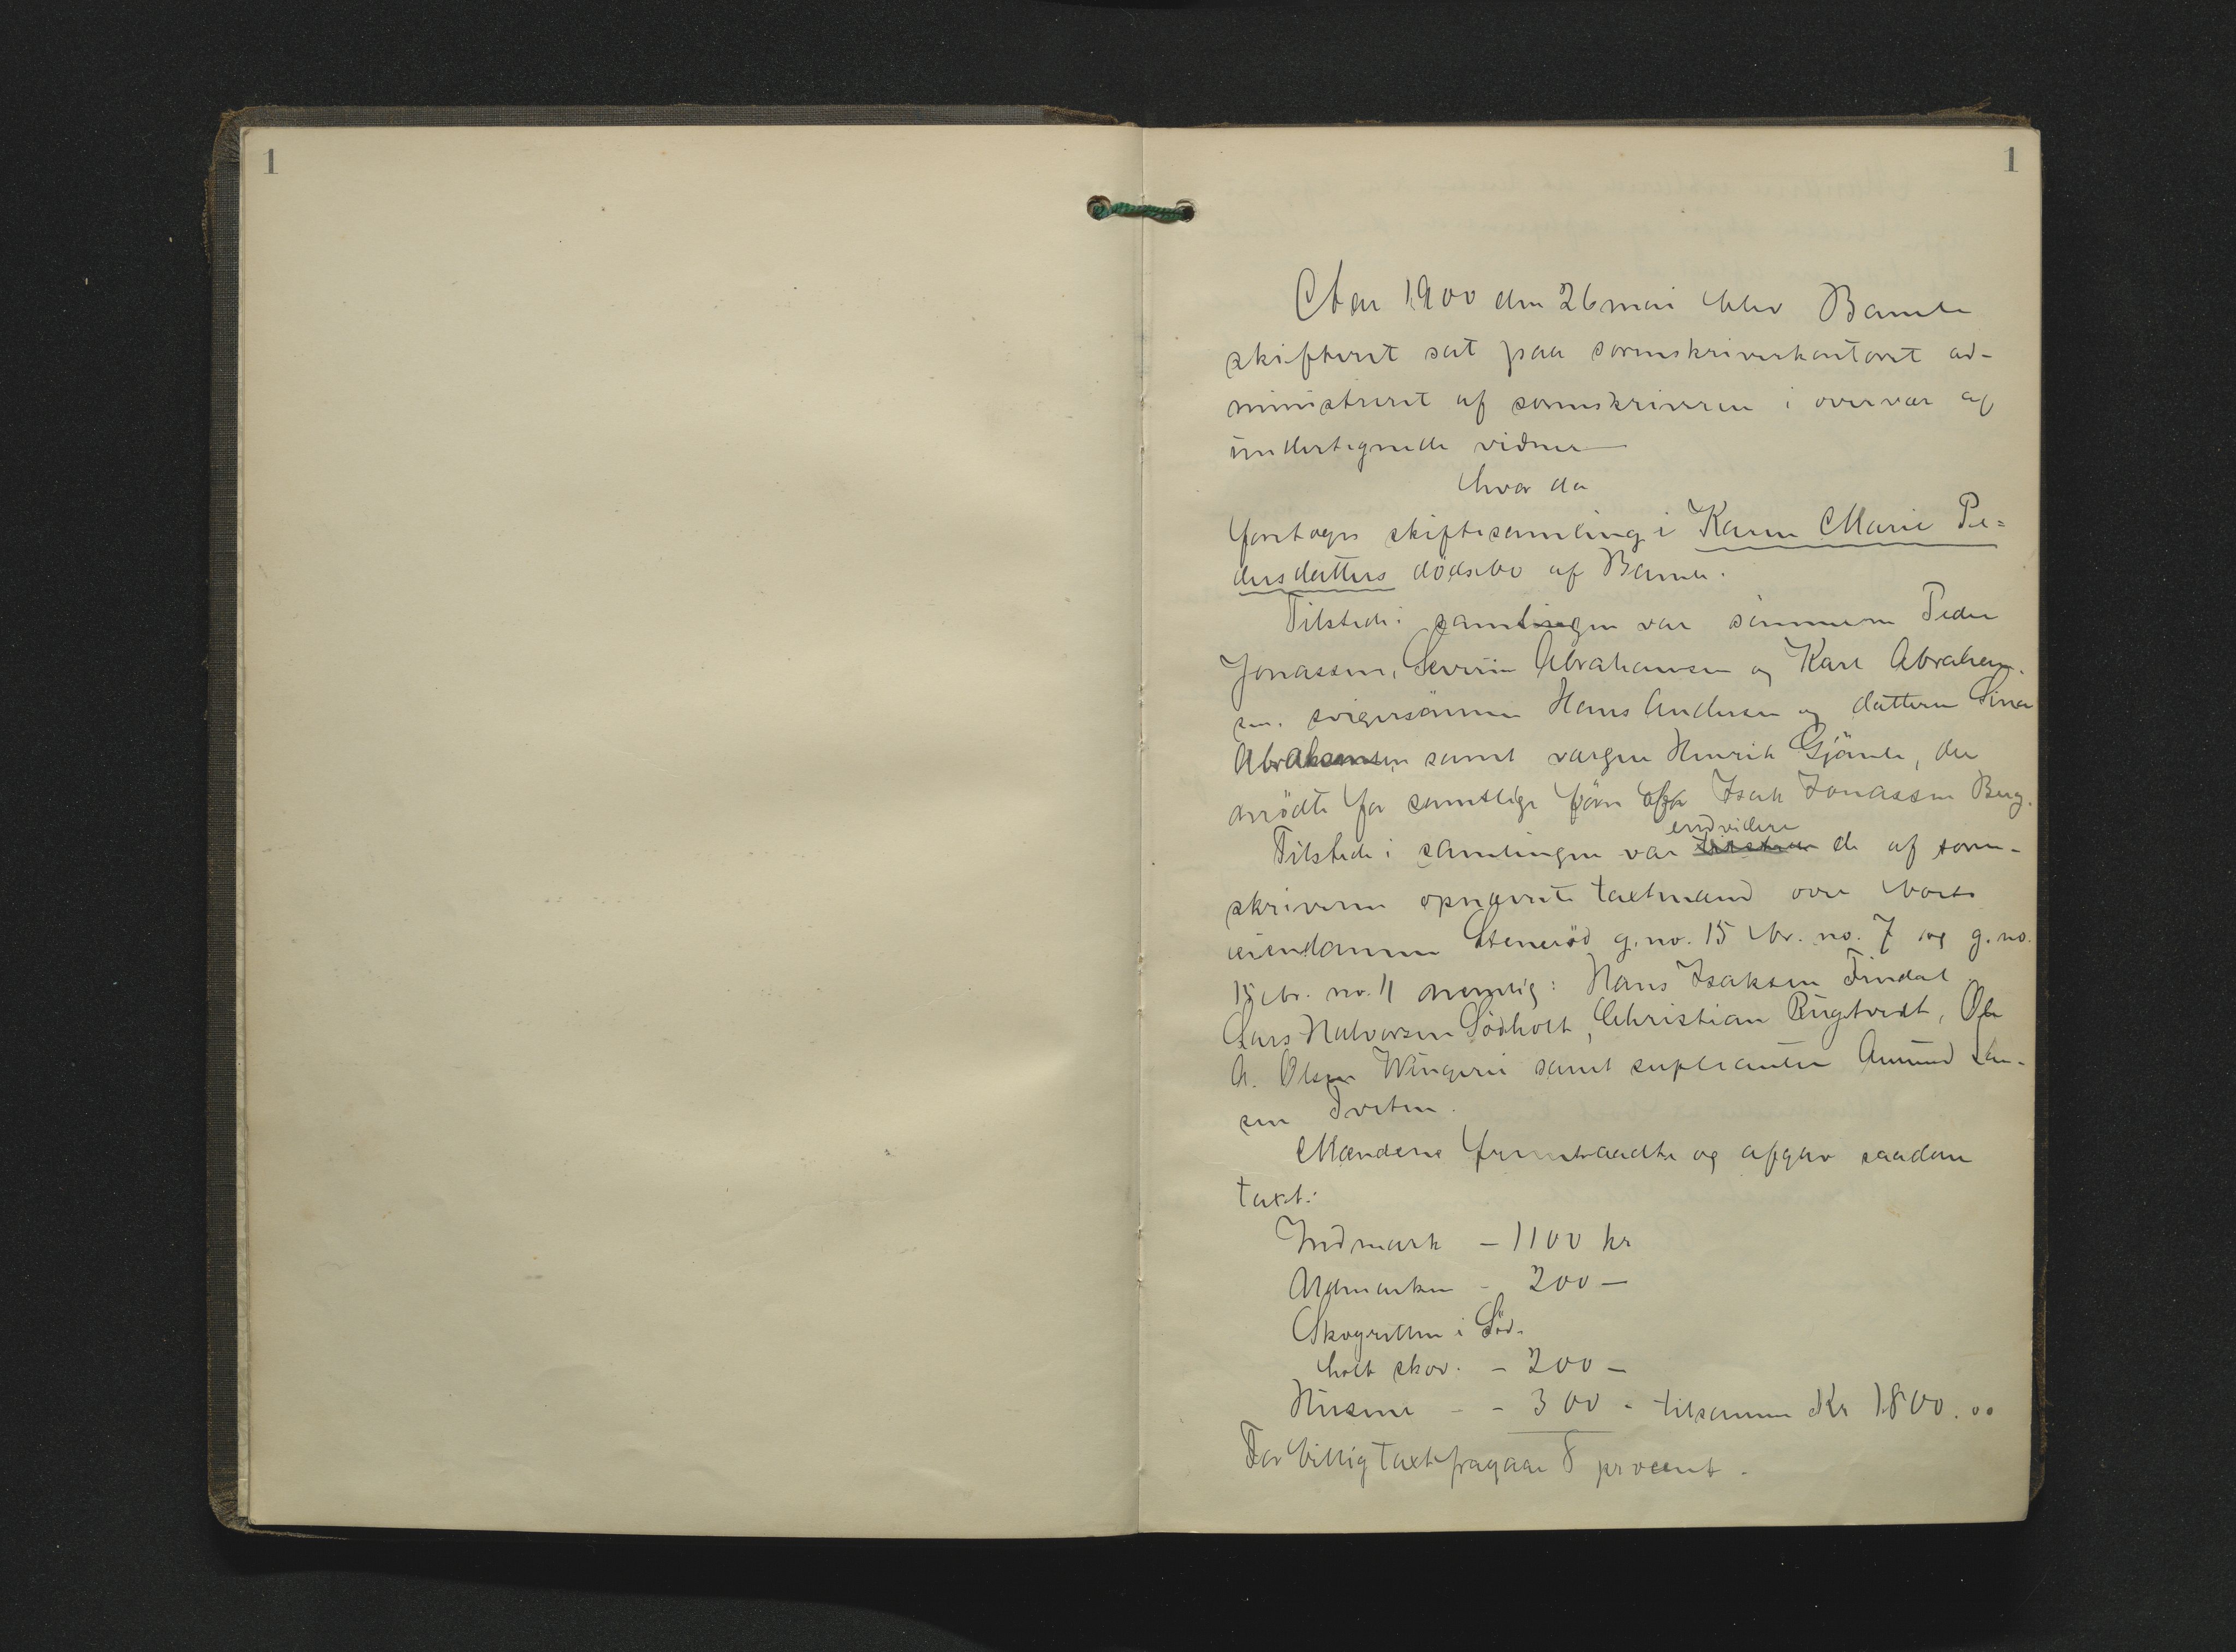 1
1
Aar 1900 den 26 mai blev Bamle
skifteret sat paa sorenskriverkontoret ad-
ministreret af sorenskriveren i overvær af
undertegnede vidner
hvor da
foretoges skiftesamling i Karen Marie Pe-
dersdatters dødsbo af Bamle.
Tilstede i samlingen var sönnerne Peder
Jonassen, Severin Abrahamsen og Karl Abraham-
sen. svigersönnen Hans Andersen og datteren Sina
Abrahamsen samt værgen Henrik Gjömle, der
mödte for samtlige börn af Isak Jonassen Berg.
endvidere
Tilstede i samlingen var de af soren-
skriveren opnævnte taxtmænd over boets
eiendomme Stenerød g. no. 15 br. no. 7 og g. no.
15 br. no. 11 nemlig: Hans Isaksen Findal
Lars Halvorsen Södholt, Christian Rugtvedt, Ole
A. Olsen Wingerei samt suplianten Amund Lar-
sen Tveten.
Mændene fremtraadte og afgav saadan
taxt:
Indmark - 1100 kr
Udmarken - 200 -
Skogretten i Söd-
holt skov. - 200 -
Husene - - 300 - tilsammen Kr 1800.00
For billig taxt fragaar 8 procent.